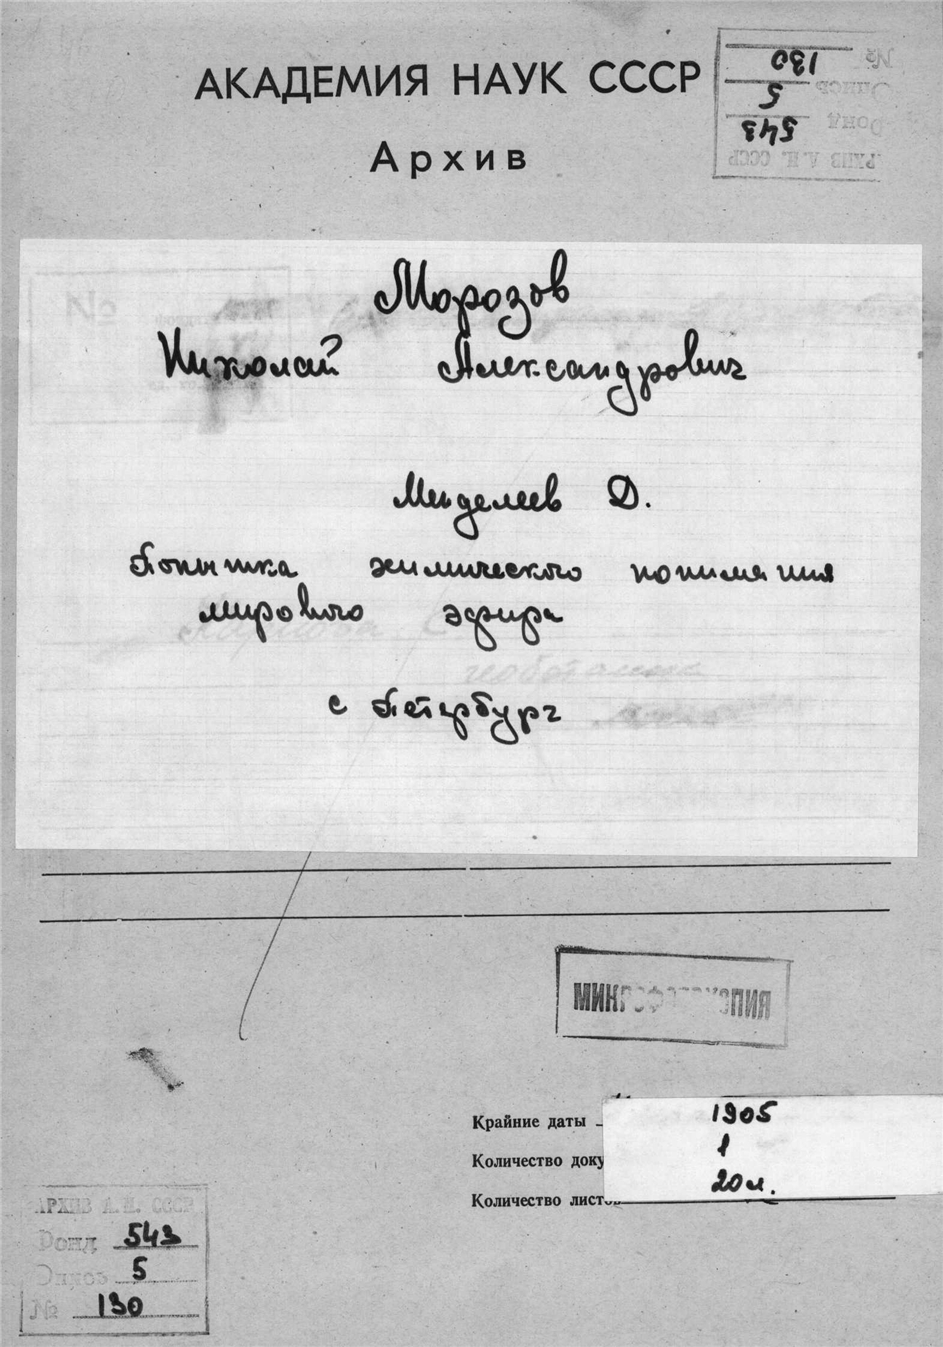 АКАДЕМИЯ НАУК СССР
Архив
№ 130
Опись 5
Фонд 543
АРХИВ А.Н. СССР
Морозов
Николай Александрович
Менделеев Д.
Попытка химического понимания
мирового эфира
С Петербург
МИКРОФОТОКОПИЯ
Крайние даты 1905
Количество доку 1
Количество листов 20 л.
АРХИВ А.Н. СССР
Фонд 543
Опись 5
№ 130